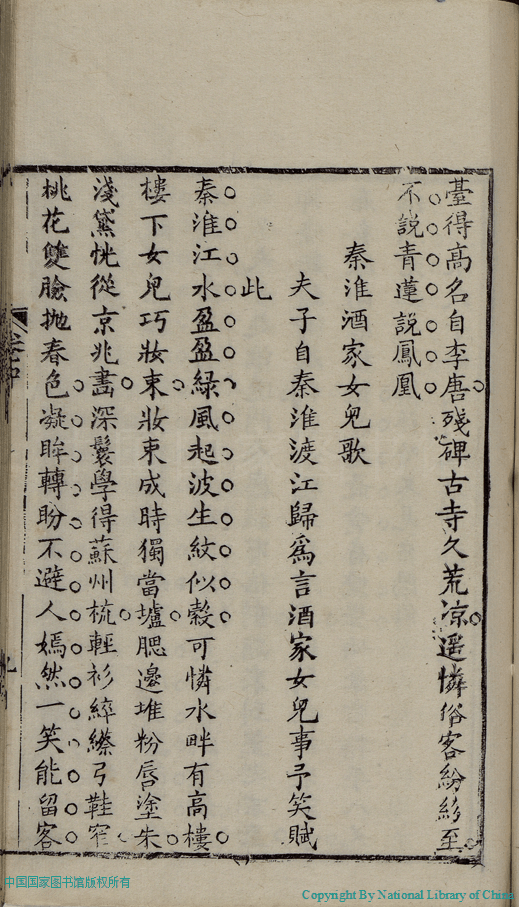 臺得高名自李唐殘碑古寺久荒凉遥憐俗客紛紛至
不說青蓮說鳳凰
秦淮酒家女兒歌
夫子自秦淮渡江歸為言酒家女兒事予笑賦
此
秦淮江水盈盈綠風起波生紋似縠可憐水畔有高樓
樓下女兒巧妝束妝束成時獨當壚腮邊堆粉唇塗朱
淺黛恍從京兆畫深鬟學得蘇州梳輕衫縩弓鞋窄
桃花雙臉抛春色凝眸轉盼不避人嫣然一笑能留客
中国国家图书馆版权所有
Copyright By National Library of China